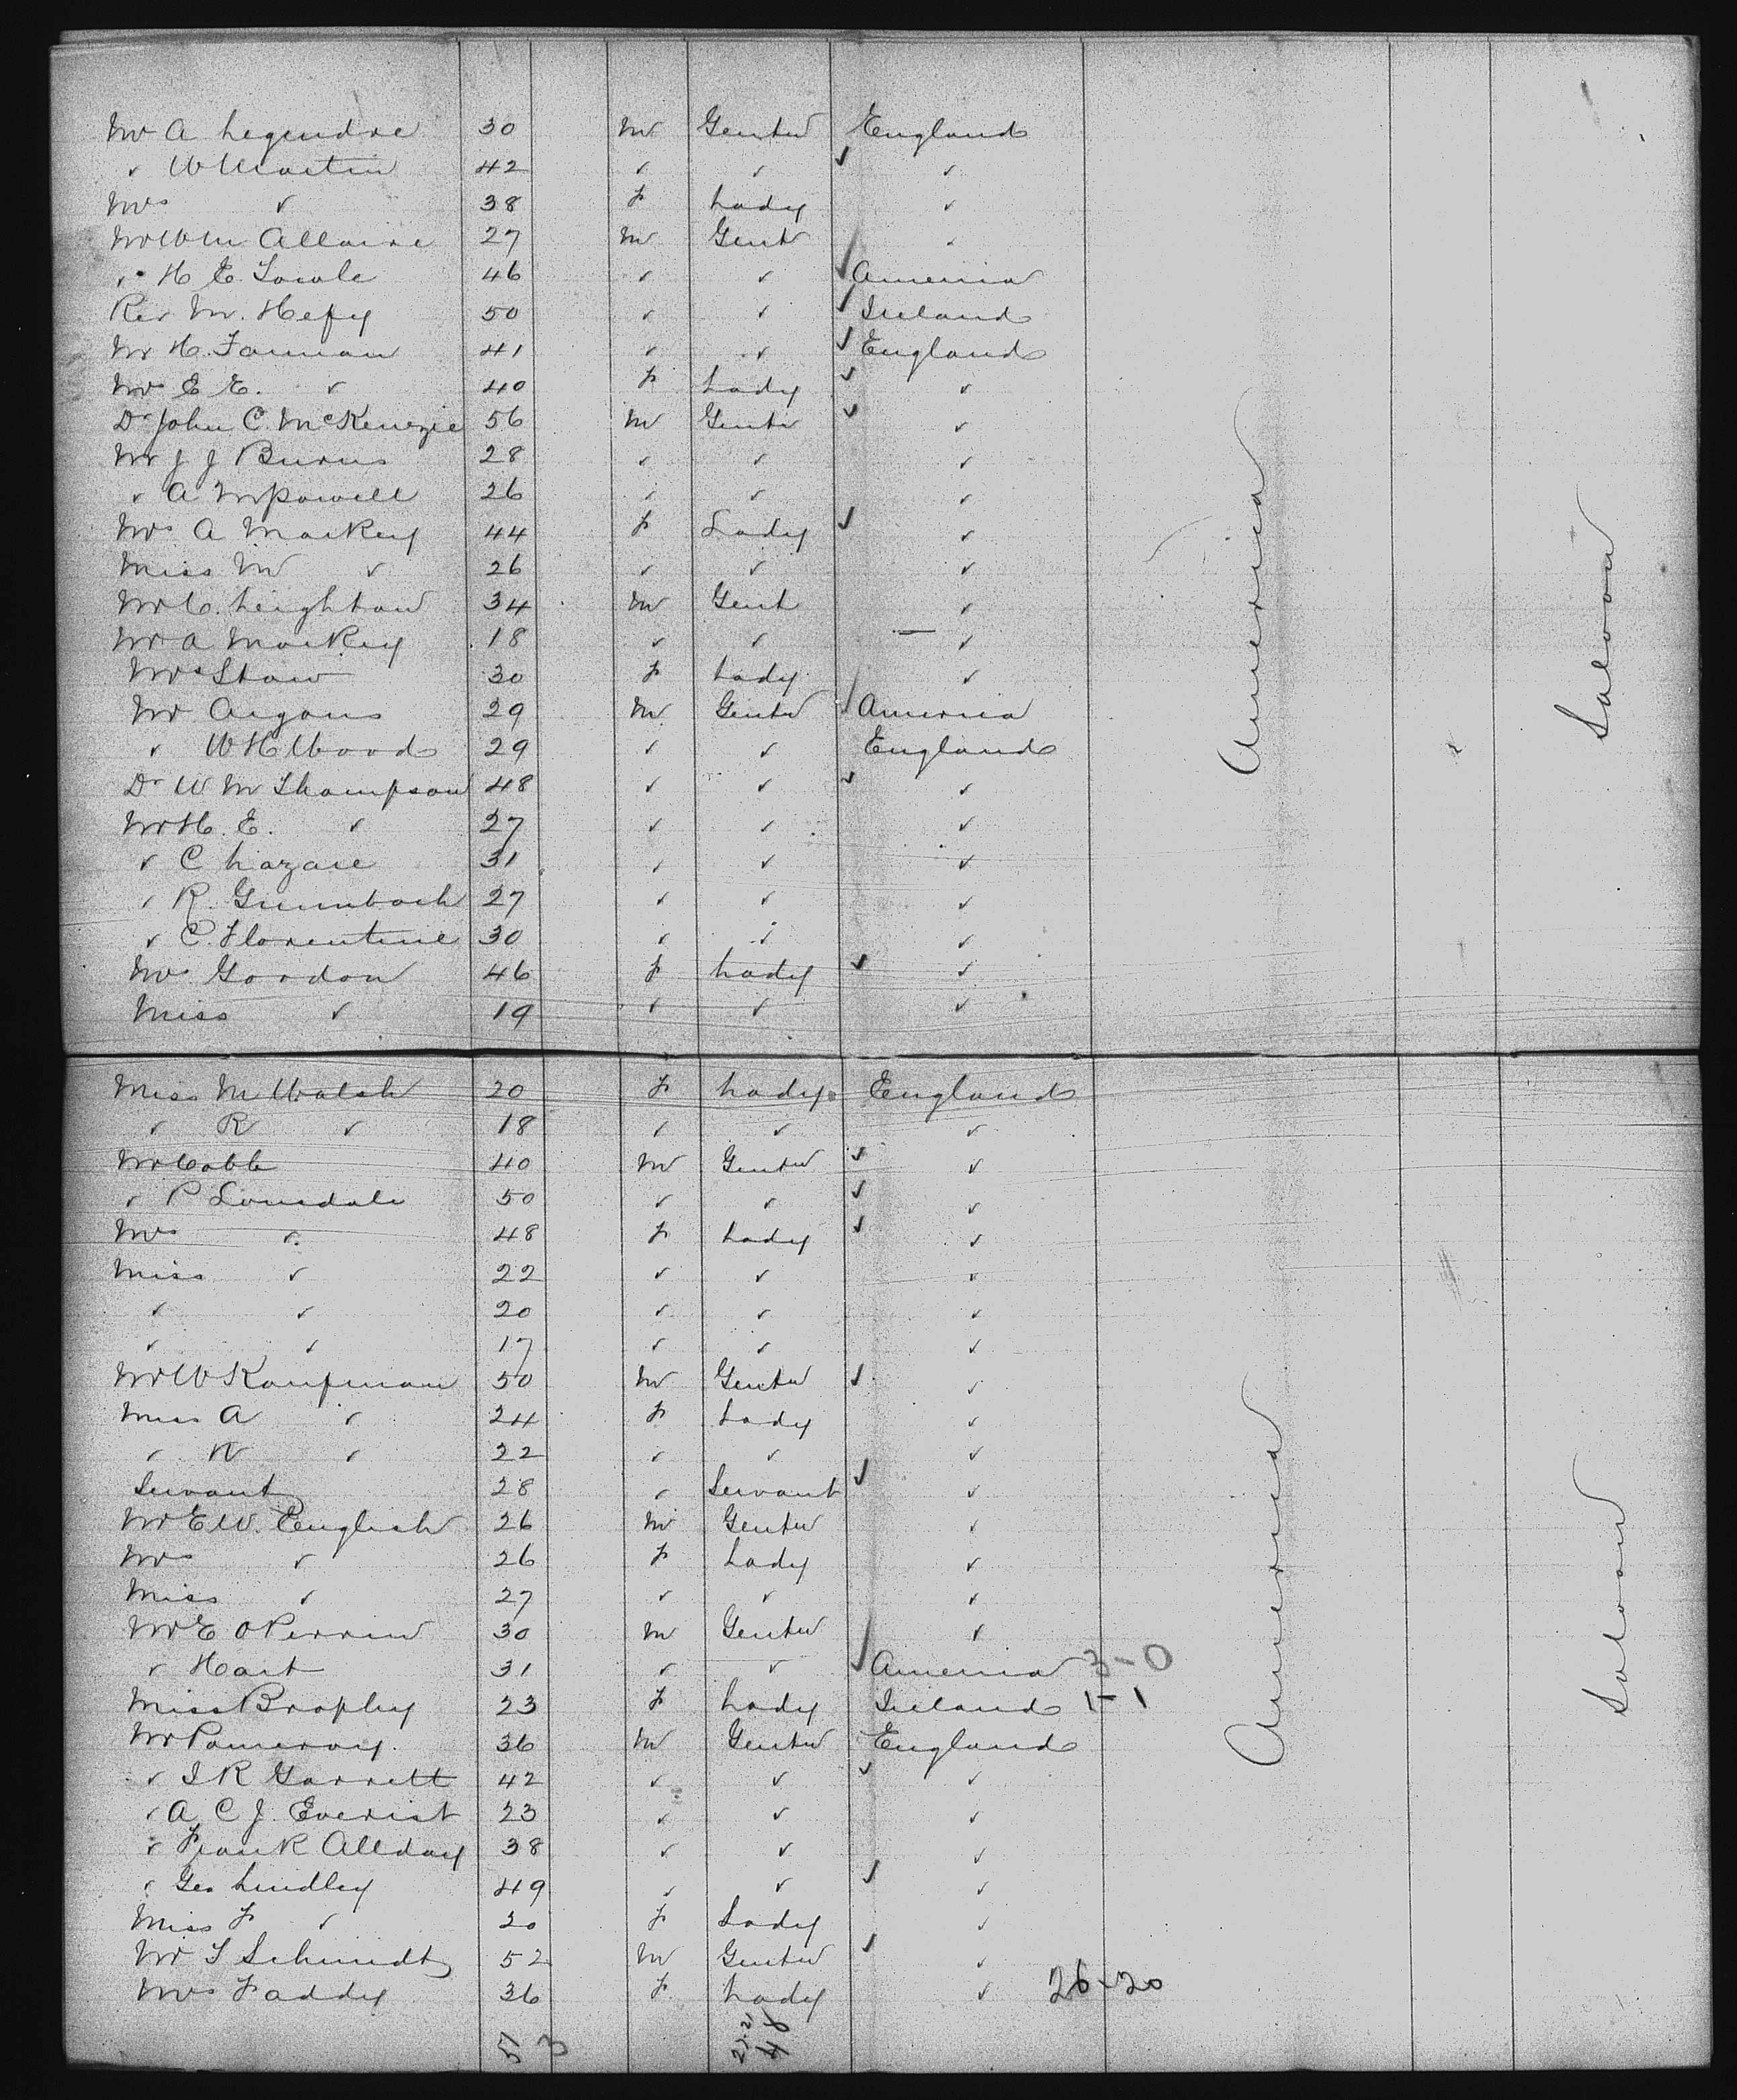 Mr A Legendre 30 M Gentn England
✓ W Martin 42 ✓ ✓ ✓
Mrs ✓ 38 F Lady ✓
Mr Wm Allaire 27 M Gent ✓
✓ H E Towle 46 ✓ ✓ America
Rev M. Hefy 50 ✓ ✓ Ireland
Mr H. Farman 41 ✓ ✓ England
Mrs E E. ✓ 40 F Lady ✓
Dr John C. McKenzie 56 M Gentn ✓
Mr J J Burns 28 ✓ ✓ ✓
✓ A McPowell 26 ✓ ✓ ✓
Mrs A Mackey 44 F Lady ✓
Miss M ✓ 26 ✓ ✓ ✓
Mr C. Leighton 34 M Gent ✓
Mr A Mackey 18 ✓ ✓ ✓
Mrs Shaw 30 F Lady ✓
Mr Aigons 29 M Gentn America
✓ W H Wood 29 ✓ ✓ England
Dr W M Thompson 48 ✓ ✓ ✓
Mr H. E. ✓ 27 ✓ ✓ ✓
✓ C Lazare 31 ✓ ✓ ✓
✓ R. Grumbach 27 ✓ ✓ ✓
✓ C. Florentine 30 ✓ ✓ ✓
Mrs Gordon 46 F Lady ✓
Miss ✓ 19 ✓ ✓ ✓
America
Saloon
Miss M Walsh 20 F Lady England
✓ R ✓ 18 ✓ ✓ ✓
Mr Cobb 40 M Gentn ✓
✓ P Lonsdale 50 ✓ ✓ ✓
Mrs ✓ 48 F Lady ✓
Miss ✓ 22 ✓ ✓ ✓
✓ ✓ 20 ✓ ✓ ✓
✓ ✓ 17 ✓ ✓ ✓
Mr W Kaufman 50 M Gentn ✓
Miss A ✓ 24 F Lady ✓
✓ ✓ 22 ✓ ✓ ✓
Servant 28 ✓ Servant ✓
Mr E W. English 26 M Gentn ✓
Mrs ✓ 26 F Lady ✓
Miss ✓ 27 ✓ ✓ ✓
Mr E O Perrin 30 M Gentn ✓
✓ Hart 31 ✓ ✓ America 3-0
Miss Brophy 23 F Lady Ireland 1-1
Mr Pomeroy. 36 M Gentn England
✓ J R Garrett 42 ✓ ✓ ✓
✓ A C J. Everist 23 ✓ ✓ ✓
✓ Frank Allday 38 ✓ ✓ ✓
✓ Geo Lindley 49 ✓ ✓ ✓
Miss F ✓ 20 F Lady ✓
Mr T Schmidt 52 M Gentn ✓
Mrs Faddy 36 F Lady ✓ 26-20
America
Saloon
51 3
48